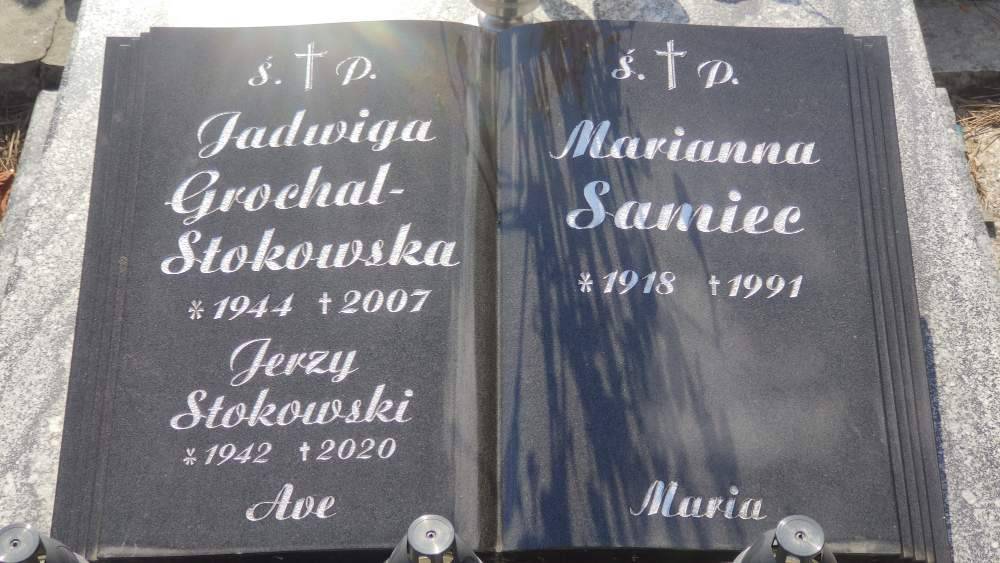 Ś. † P.
Jadwiga
Grochal-
Stokowska
* 1944 † 2007
Jerzy
Stokowski
* 1942 † 2020
Ave
Ś. † P.
Marianna
Samiec
* 1918 † 1991
Maria